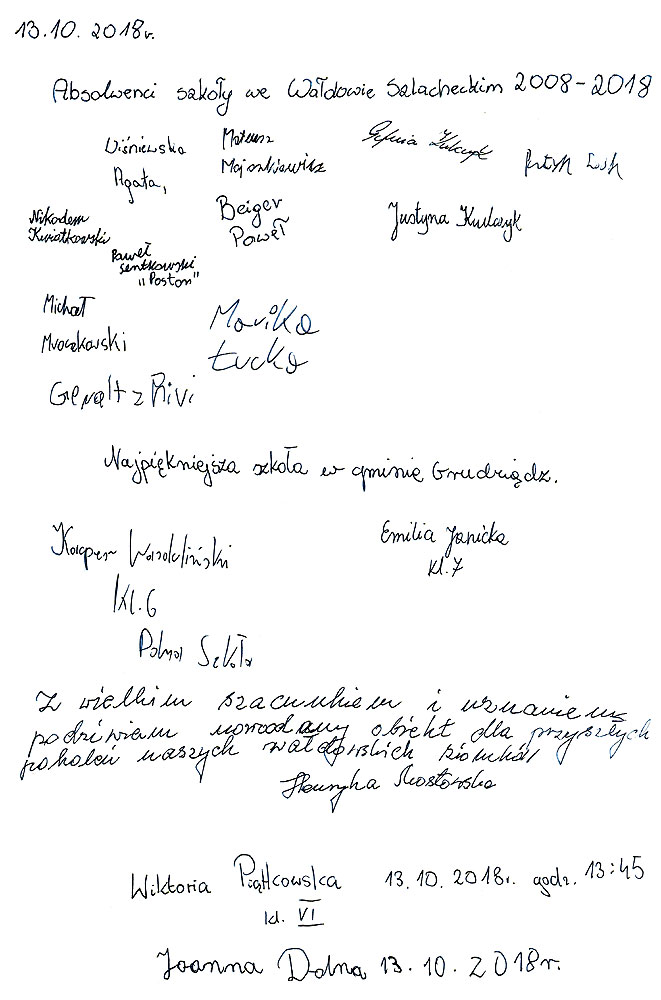 13.10.2018r.
Absolwenci szkoły we Wałdowie Szlacheckim 2008-2018
Wiśniewska
Agata,
Mateusz
Majoszkiewicz
Nikodem
Kwiatkowski
Paweł
Sentkowski
"Poston"
Beiger
Paweł
Justyna Kulczyk
Michał
Mroczkowski
Gerałt z Rivi
Marika
Łucka
Najpiękniejsza szkoła w gminie Grudziądz.
Kacper
Kl.6
Szkoła
Emilia Janicka
kl.7
Z wielkim szacunkiem i uznaniem
podziwiam obiekt dla przyszłych
pokoleń naszych wałdowskich
Henryka
Wiktoria Piątkowska 13.10.2018r. godz. 13:45
kl. VI
Joanna Dolna 13.10.2018r.